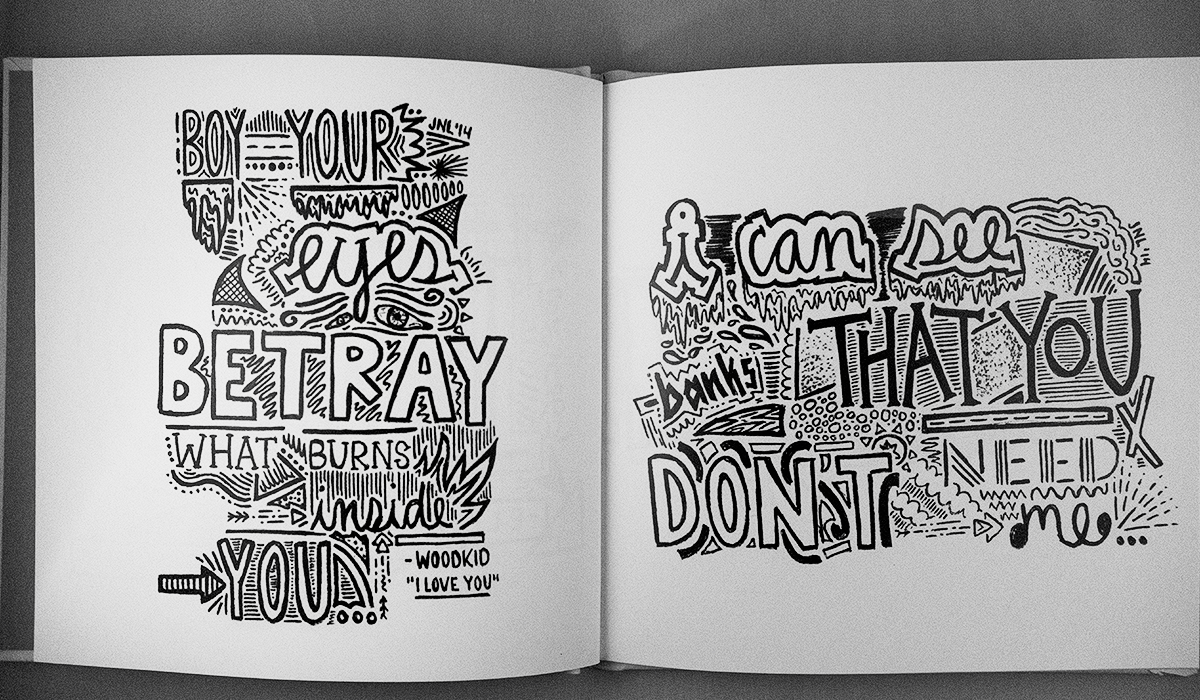 BOY YOUR
JNL '14
eyes
BETRAY
WHAT BURNS
inside
YOU
-WOODKID
"I LOVE YOU"
i can see
THAT YOU
-banks
DON'T NEED
me...